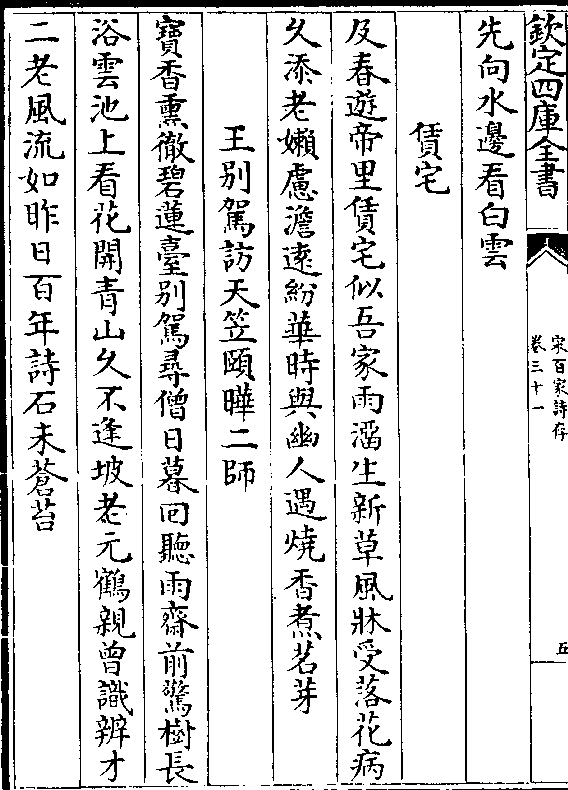 欽定四庫全書
宋百家詩存
卷三十一
五
先向水邊看白雲
賃宅
及春遊帝里賃宅似吾家雨溜生新草風牀受落花病
久添老嬾慮澹遠紛華時與幽人遇燒香煮茗芽
王别駕訪天笠頤曄二師
寶香熏徹碧蓮臺别駕尋僧日暮回聽雨齋前驚樹長
浴雲池上看花開青山久不逢坡老元鶴親曾識辨才
二老風流如昨日百年詩石未蒼苔